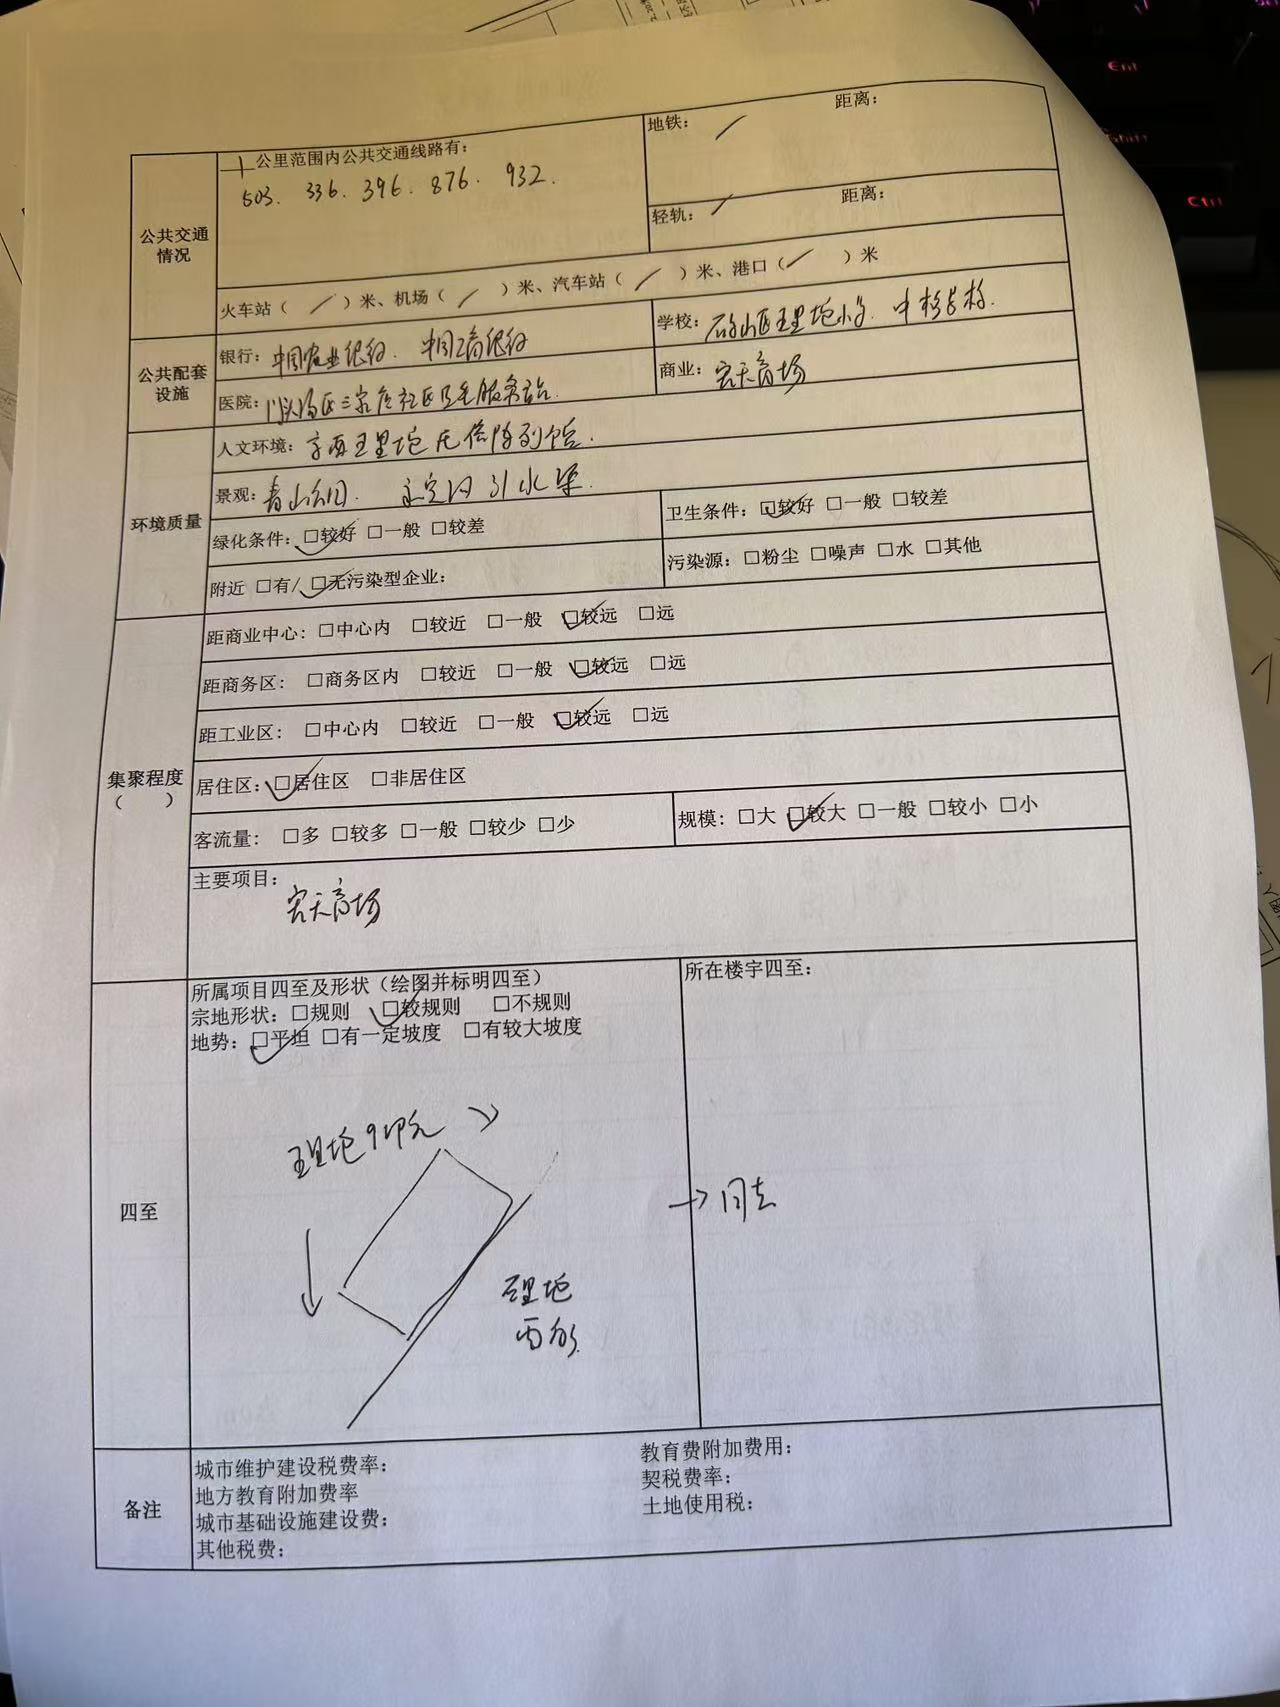 距离:
地铁: /
一 公里范围内公共交通线路有:
503. 336. 396. 876. 932.
距离:
轻轨: /
公共交通
情况
火车站( / )米、机场( / )米、汽车站( / )米、港口( / )米
学校: 石景山区五里坨小学.
银行: 中国农业银行. 中国工商银行
公共配套
设施
商业: 宏天商场
医院: 门头沟区三家店社区卫生服务站.
人文环境: 京西五里坨民俗陈列馆.
景观: 青山公园. 永定河引水渠.
环境质量
绿化条件: ☑较好 □一般 □较差
卫生条件: ☑较好 □一般 □较差
附近 □有/ ☑无污染型企业:
污染源: □粉尘 □噪声 □水 □其他
距商业中心: □中心内 □较近 □一般 ☑较远 □远
距商务区: □商务区内 □较近 □一般 ☑较远 □远
距工业区: □中心内 □较近 □一般 ☑较远 □远
集聚程度
( )
居住区: ☑居住区 □非居住区
客流量: □多 □较多 □一般 □较少 □少
规模: □大 ☑较大 □一般 □较小 □小
主要项目:
宏天商场
所属项目四至及形状(绘图并标明四至)
宗地形状: □规则 ☑较规则 □不规则
地势: ☑平坦 □有一定坡度 □有较大坡度
所在楼宇四至:
五里坨
四至
→ 同左
五里坨
西街
备注
城市维护建设税费率:
教育费附加费用:
地方教育附加费率
契税费率:
城市基础设施建设费:
土地使用税:
其他税费:
Ent
Shift
Ctrl